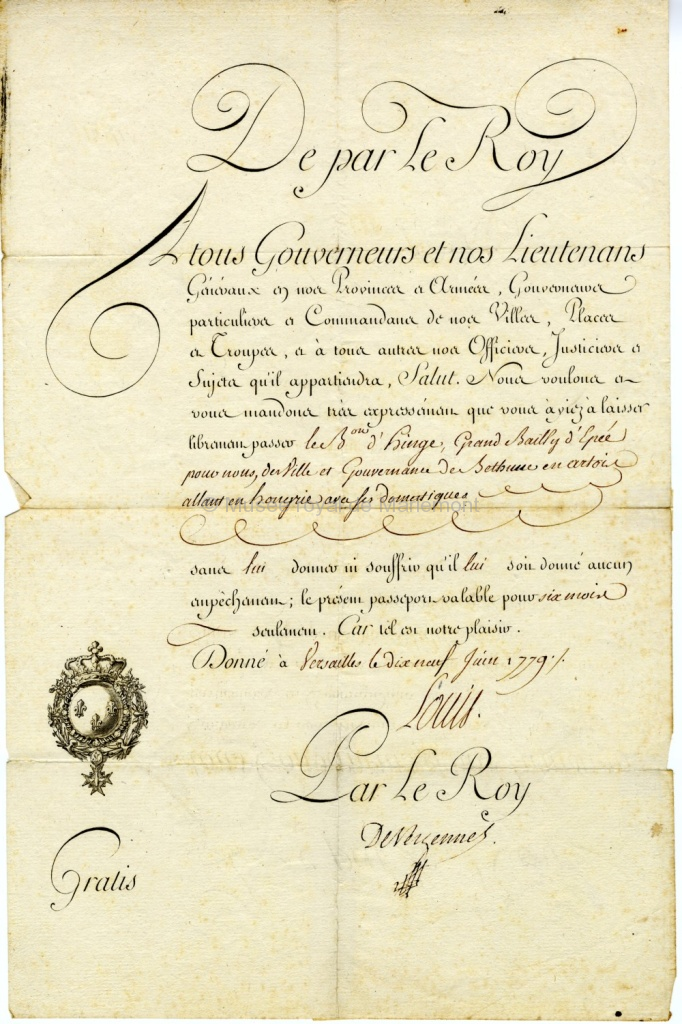 De par Le Roy
A tous Gouverneurs et nos Lieutenans
Généraux en nos Provinces et Armées, Gouverneurs
particuliers et Commandans de nos Villes, Places
et Troupes, et à tous autres nos Officiers, Justiciers et
Sujets qu'il appartiendra, Salut. Nous voulons et
vous mandons très expressément que vous àyiez à laisser
librement passer le B.on d'hinge, Grand Bailly d'Epée
pour nous, des Ville et Gouvernance de Bethune en artois
allant en hongrie avec ses domestiques
© Musée royal de Mariemont
sans lui donner ni souffrir qu'il lui soit donné aucun
empêchement; le présent passeport valable pour six mois
seulement. Car tel est notre plaisir.
Donné à Versailles le dix neuf Juin 1779 ./.
Louis.
Par Le Roy
De Vergennes.
Gratis